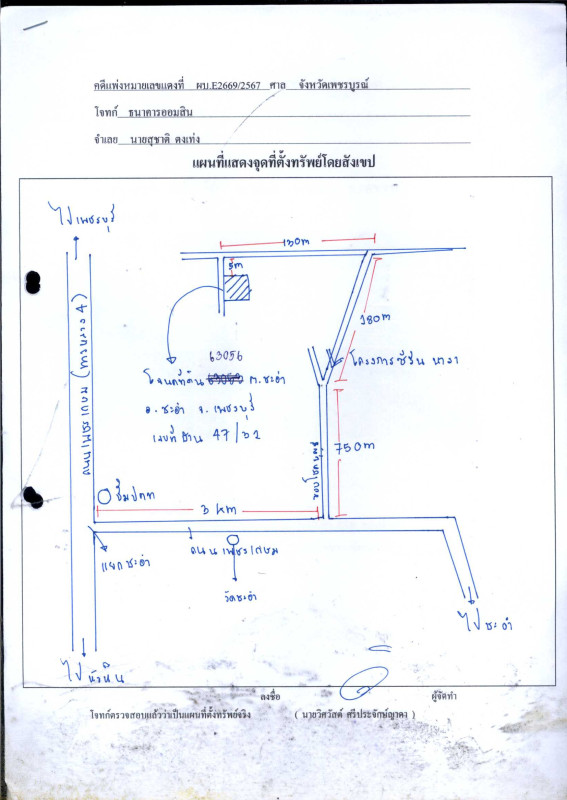 คดีแพ่งหมายเลขแดงที่ ผบ.E2669/2567 ศาล จังหวัดเพชรบูรณ์
โจทก์ ธนาคารออมสิน
จำเลย นายสุชาติ ดงเท่ง
แผนที่แสดงจุดที่ตั้งทรัพย์โดยสังเขป
ไปเพชรบุรี
130m
5m
180m
63056
โครงการซีซัน
โฉนดที่ดิน ต.ชะอำ
อ.ชะอำ จ.เพชรบุรี
เลขที่บ้าน 47/
750m
3 km
แยกชะอำ
ถนนเพชรเกษม
วัดชะอำ
ไปชะอำ
ไปหัวหิน
ลงชื่อ ผู้จัดทำ
โจทก์ตรวจสอบแล้วว่าเป็นแผนที่ตั้งทรัพย์จริง ( นายวิศวัสต์ ศรีประจักษ์ญาดง )